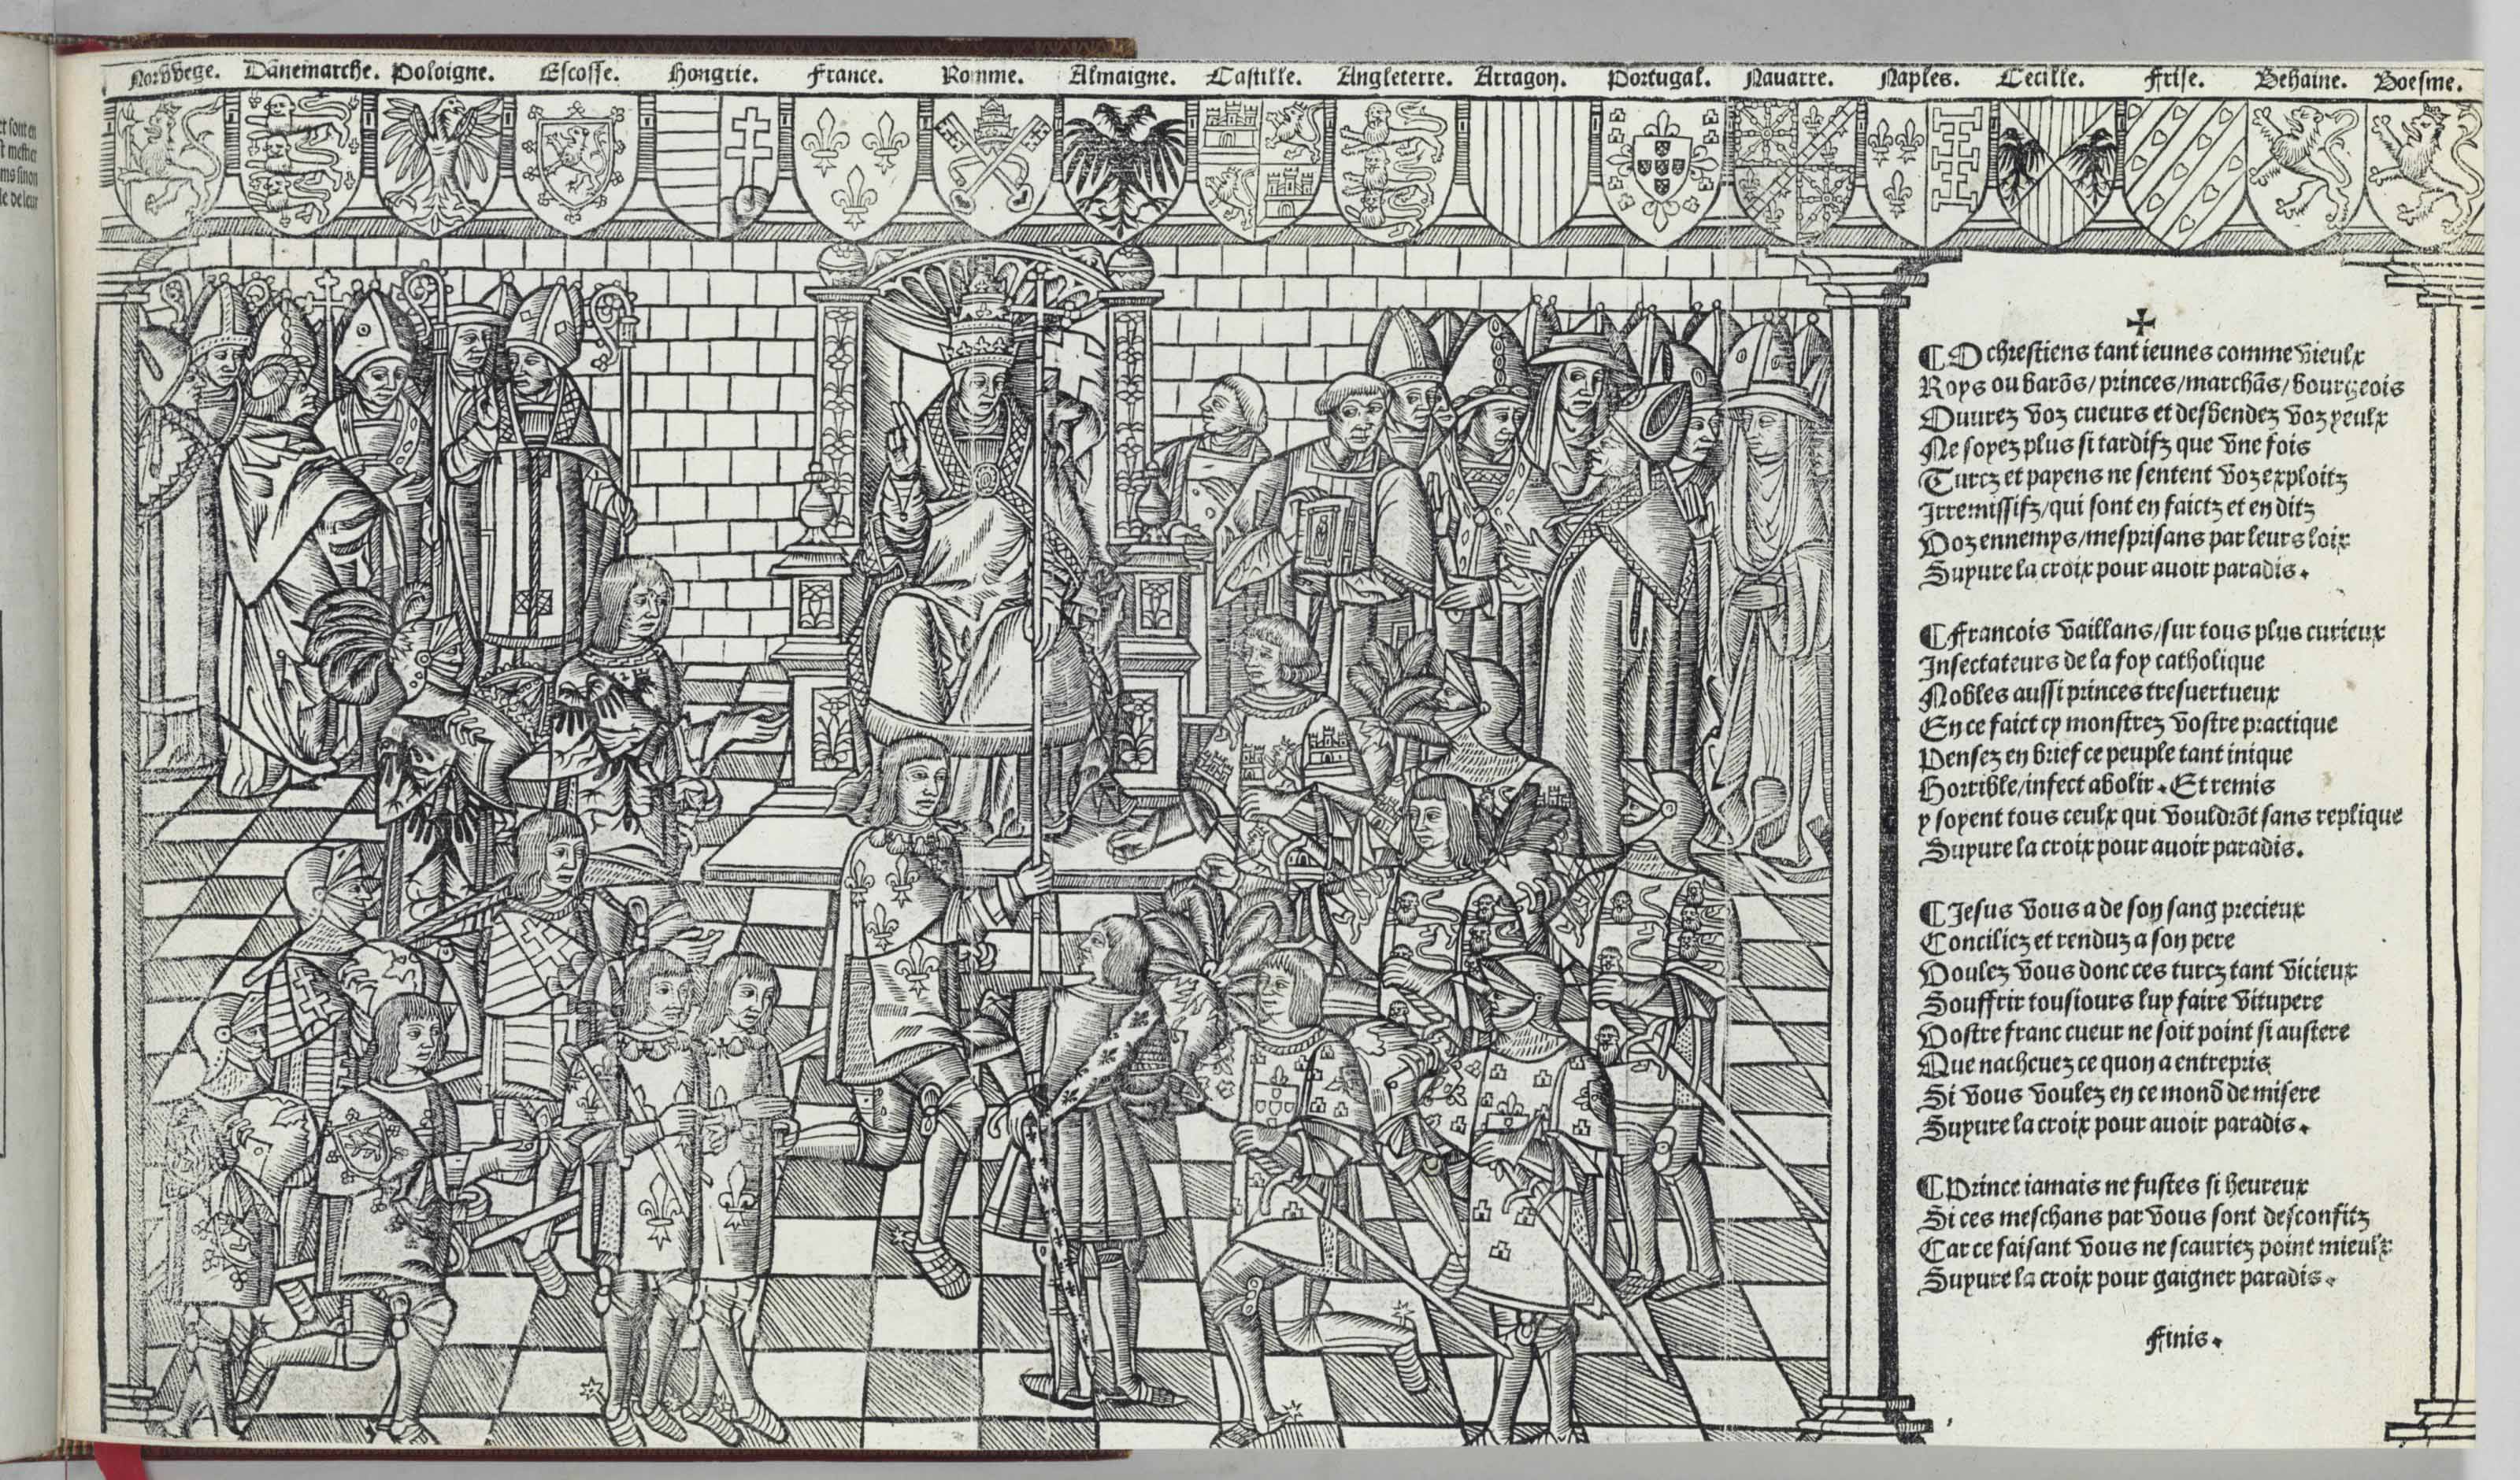 et sont en
st mestier
ms sinon
le de leur
Norvvege. Dānemarche. Poloigne. Escosse. Hongrie. France. Romme. Almaigne. Castille. Angleterre. Arragon. Portugal. Nauarre. Naples. Cecille. Frise. Behaine. Boesme.
¶ O chrestiens tant ieunes comme vieulx
Roys ou barōs/princes/marchās/bourgeois
Ouurez voz cueurs et desbendez voz yeulx
Ne soyez plus si tardifz que vne fois
Turcz et payens ne sentent voz exploitz
Irremissifz/qui sont en faictz et en ditz
Voz ennemys/mesprisans par leurs loix
Suyure la croix pour auoir paradis.
¶ Francois vaillans/sur tous plus curieux
Insectateurs de la foy catholique
Nobles aussi princes tresuertueux
En ce faict cy monstrez vostre practique
Pensez en brief ce peuple tant inique
Horrible/infect abolir. Et remis
y soyent tous ceulx qui vouldrōt sans replique
Suyure la croix pour auoir paradis.
¶ Jesus vous a de son sang precieux
Conciliez et renduz a son pere
Voulez vous donc ces turcz tant vicieux
Souffrir tousiours luy faire vitupere
Vostre franc cueur ne soit point si austere
Que nacheuez ce quon a entrepris
Si vous voulez en ce mond de misere
Suyure la croix pour auoir paradis.
¶ Prince iamais ne fustes si heureux
Si ces meschans par vous sont desconfitz
Car ce faisant vous ne scauriez point mieulx
Suyure la croix pour gaigner paradis.
Finis.